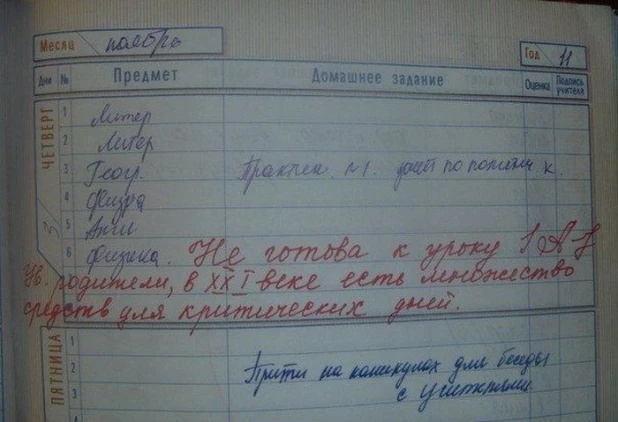 Месяц ноябрь Год 11
Дни № Предмет Домашнее задание Оценка Подпись учителя
ЧЕТВЕРГ 3
1 Литер
2 Литер
3 Геогр. Практич. №1. по политич. к.
4 Физра
5 Англ
6 Физика. Не готова к уроку
Ув. родители, в XXI веке есть множество
средств для критических дней.
ПЯТНИЦА
1 Прийти на каникулах для беседы
2 с учителями
3